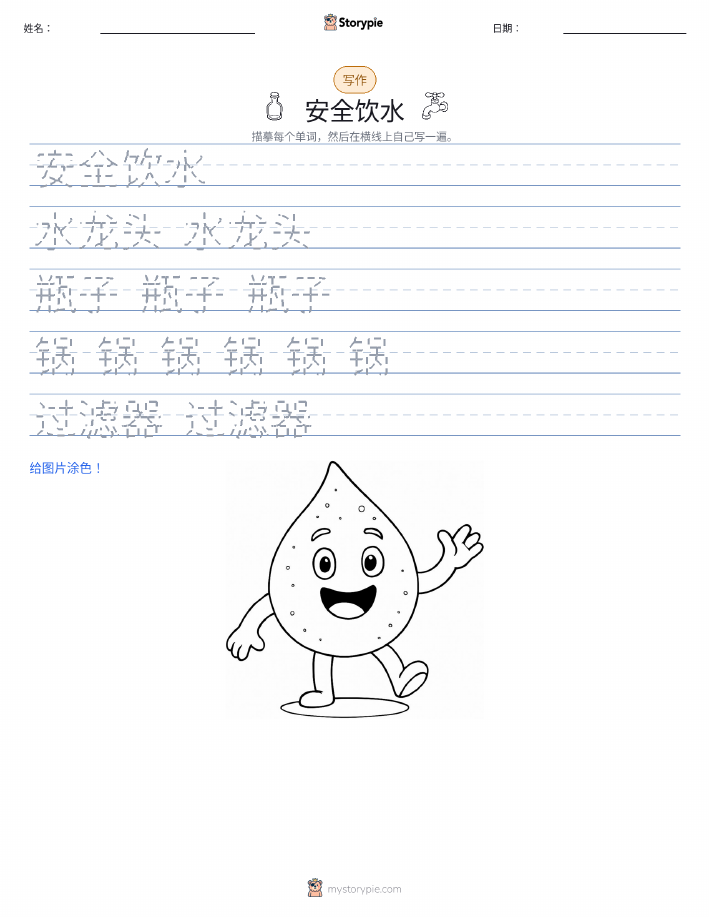 姓名：
Storypie
日期：
写作
安全饮水
描摹每个单词，然后在横线上自己写一遍。
安全饮水
水龙头 水龙头
瓶子 瓶子 瓶子
锅 锅 锅 锅 锅 锅
过滤器 过滤器
给图片涂色！
mystorypie.com